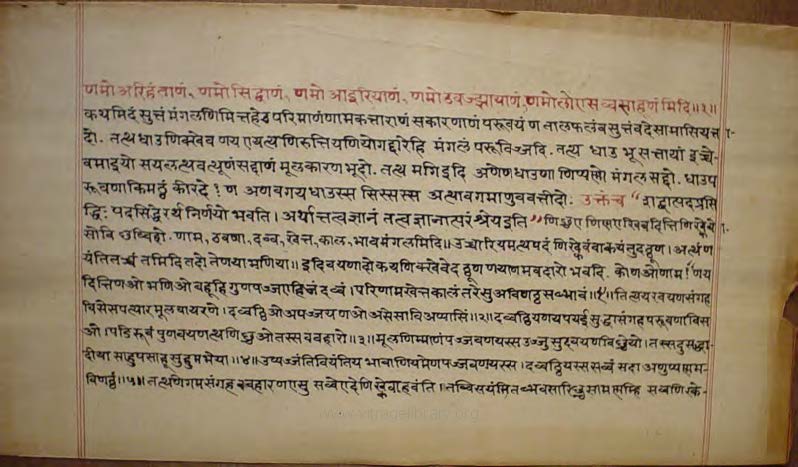 णमो अरिहंताणं, णमो सिद्धाणं, णमो आइरियाणं, णमो उवज्झायाणं, णमो लोए सव्वसाहूणं मिदि॥१॥
कथमिदं सुत्तं मंगलणिमित्तहेउपरिमाणणामकत्ताराणं सकारणाणं परूवयं ण तालफलंब सुत्तंवदेसामासियत्ता-
दो. तत्थ धाउणिक्खेवणयएयत्थणिरुत्तियणियोगद्दारेहि मंगलं परूविज्जदि. तत्थ धाउ भूसत्तायां इच्चे-
वमाइयो सयलत्थवत्थूणंसद्दाणं मूलकारणभूदो. तत्थ मगिइदि अणेणधाउणा णिप्पण्णो मंगल सद्दो. धाउप
रूवणाकिमट्ठं कीरदे? ण अणवगयधाउस्स सिस्सस्स अत्थावगमाणुववत्तीदो. उक्तंच "शब्दात्पदप्रसि
द्धिः पदसिद्धेरर्थ निर्णयो भवति। अर्थात्तत्त्वज्ञानं तत्त्वज्ञानात्परंश्रेयइति"
सोवि छव्विहो. णाम, ठवणा, दव्व, खेत्त, काल, भावमंगलमिदि॥ उच्चारियमत्थपदं णिक्खेवंवाकयंतुदट्ठूण। अत्थंण
यंतितच्चंतमिदितदोतेणयाभणिया॥ इदिवयणादोकयणिक्खेवेदट्ठूणणयाणमवदारोभवदि. कोणओणाम! "णय
दित्तिणओभणिओबहूहिगुणपज्जएहिजंदव्वं। परिणामखेत्तकालंतरेसुअविणट्ठसब्भावं॥१॥ तित्थयरवयणसंगह
विसेसपत्थारमूलवायरणे। दव्वट्ठिओअपज्जयणओअसेसावियप्पासिं॥२॥ दव्वट्ठियणयपयईसुद्धासंगहपरूवणाविस
ओ। पडिरूवंपुणवयणत्थणिच्छओतस्सववहारो॥३॥ मूलणिम्माणंपज्जवणयस्सउज्जुसुदवयणविच्छेयो। तस्सदुसद्दा-
दीयासाहुपसाहूसुहुमभेया॥४॥ उप्पज्जंतिवियंतियभावाणियमेणपज्जवणयस्स। दव्वट्ठियस्ससव्वंसदाअणुप्पण्णम-
विणट्ठं॥५॥ तत्थणिगमसंगहववहारणएसुसव्वेएदेणिक्खेवाहवंति। तव्विसयंमितब्भवसारिच्छसामण्णम्हिसव्वणिक्खे-
www.vitragelibrary.org